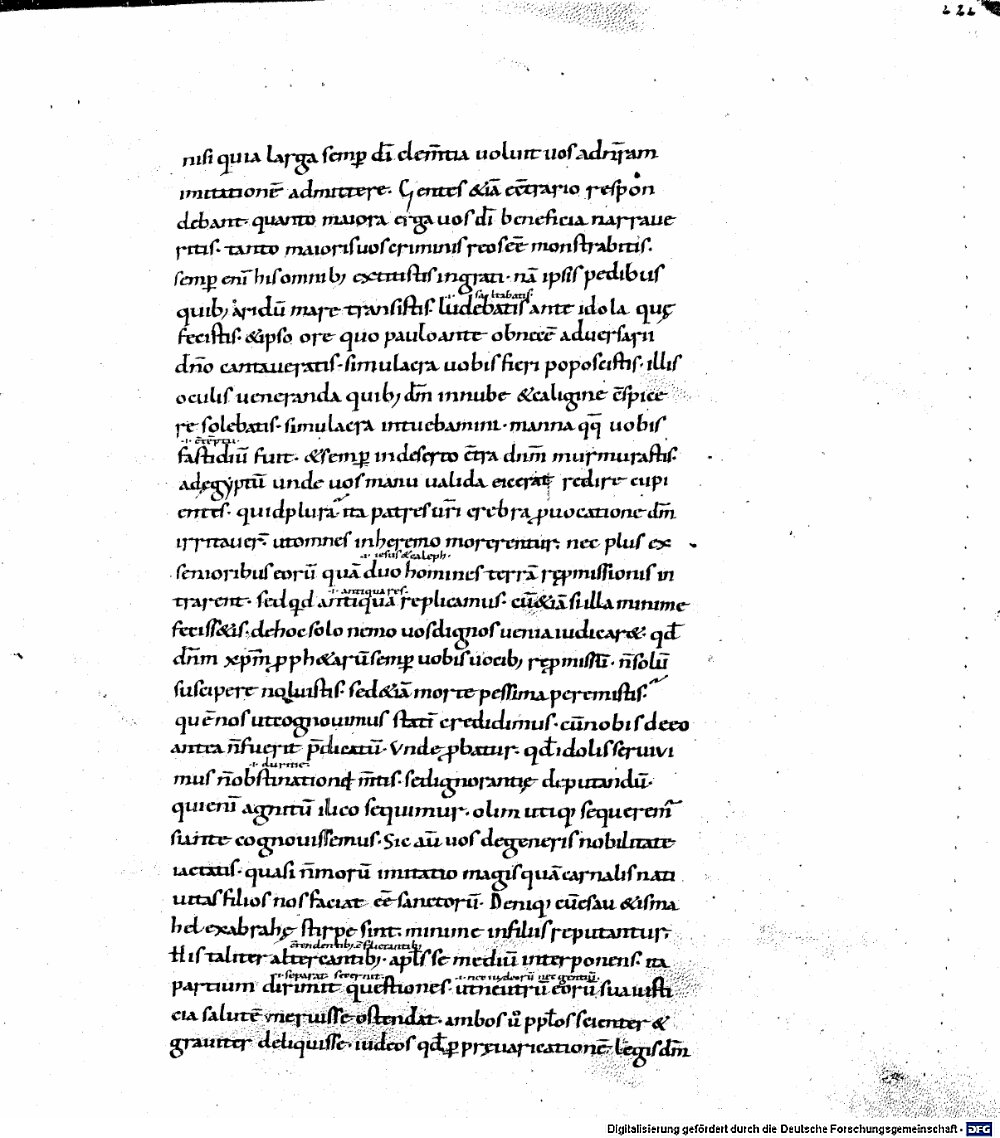 nisi quia larga semꝑ dī clem̄tia uoluit uos adnr̄am
imitationē admittere. Gentes &iā ec̄trario respon
debant. quanto maiora erga uos dī beneficia narraue
ritis. tanto maioris uos criminis reos eē monstrabitis.
semꝑ enī his omnib; extitistis ingrati. nā ipsis pedibus
.i. saltabatis.
quib; aridū mare transistis. ludebatis ante idola quę
fecistis. &ipso ore quo pauloante obnecē aduersarii
dn̄o cantaueratis. simulacra uobis fieri poposcistis. illis
oculis ueneranda quib; dm̄ innube &caligine c̄spice
re solebatis. simulacra intuebamini. manna qq̄ uobis
fastidiū fuit. &semꝑ indeserto c̄tra dnm̄ murmurastis.
adęgyptū unde uos manu ualida eicerat redire cupi
entes. quidplura ita patres ur̄i crebra ꝓuocatione dm̄
irritauer̄ utomnes inheremo morerentur. nec plus ex
.i. iesus &caleph.
senioribus eorū quā duo homines terrā rep̱missionis in
.i. antiquas res.
trarent. sedqd antiqua replicamus. cū&iāsi illa minime
feciss&is. dehoc solo nemo uosdignos uenia iudicar&. qđ
dn̄m xpm̄ ꝓph&arū semꝑ uobis uocib; reꝓmissū. n̄solū
suscipere noluistis. sed&iā morte pessima peremistis.
quē nos utcognouimus statī credidimus. cū nobis deeo
antea n̄fuerit p̄dicatū. Vnde ꝓbatur. qđ idolis seruiui
mus n̄obstinationę m̄tis. sedignorantię deputandū.
quienī agnitū ilico sequimur. olim utiq; sequerem̄
siante cognouissemus. Sic aū uos degeneris nobilitate
iactatis. quasi n̄morū imitatio magis quā carnalis nati
uitas filios nos faciat eē sanctorū. Deniq; cūesau &isma
hel exabrahę stirpe sint. minime infilius reputantur.
His taliter altercantib; apl̄s se mediū interponens. ita
.i. separat. .i. nec iudeorū nec gentiū.
partium dirimit questiones. utneutrū eorū sua iusti
cia salutē meruisse ostendat. ambos ū ppl̄os scienter &
grauiter deliquisse. iudeos qđ ꝑ prȩuaricationē legis dm̄
Digitalisierung gefördert durch die Deutsche Forschungsgemeinschaft - DFG